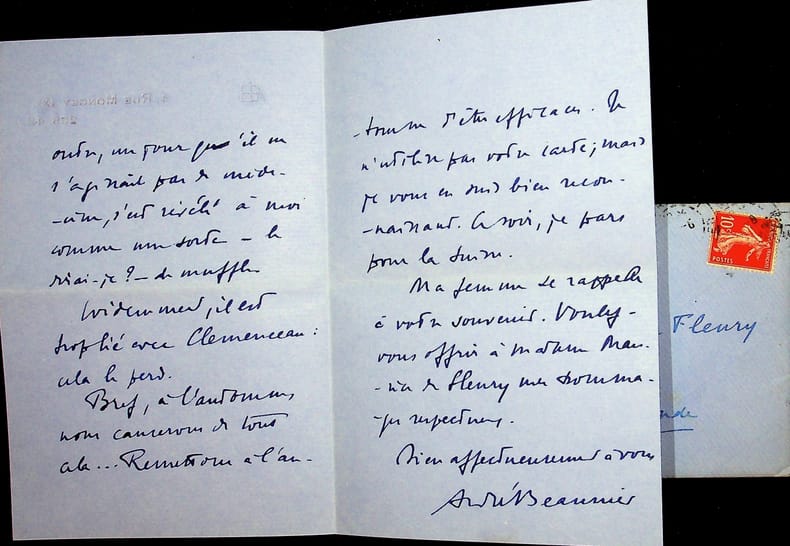 outre, un jour qu'il ne
s'agissait pas de méde-
-cine, s'est révélé à moi
comme une sorte – le
dirai-je? – de mufle.
Évidemment, il est
trop lié avec Clemenceau :
cela le perd.
Bref, à l'automne
nous causerons de tout
cela... Remettons à l'au-
-tomne d'être efficaces. Je
n'utilise pas votre carte; mais
je vous en suis bien recon-
-naissant. Ce soir, je pars
pour la Suisse.
Ma femme se rappelle
à votre souvenir. Voulez-
vous offrir à Madame Mau-
-rice de Fleury mes homma-
-ges respectueux.
Bien affectueusement à vous
André Beaunier
4, Rue Moncey (IX)
10c
POSTES
Fleury